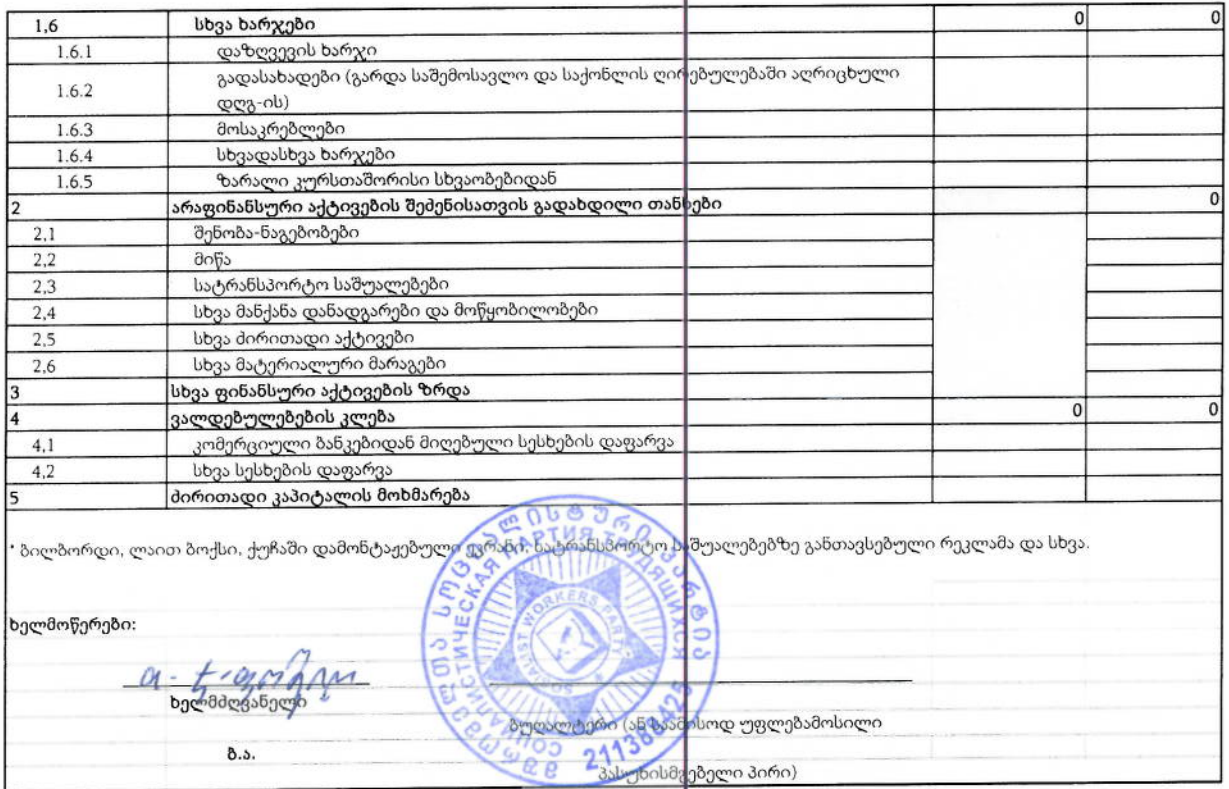 1,6 სხვა ხარჯები 0 0
1.6.1 დაზღვევის ხარჯი
1.6.2 გადასახადები (გარდა საშემოსავლო და საქონლის ღირებულებაში აღრიცხული
დღგ-ის)
1.6.3 მოსაკრებლები
1.6.4 სხვადასხვა ხარჯები
1.6.5 ზარალი კურსთაშორისი სხვაობებიდან
2 არაფინანსური აქტივების შეძენისათვის გადახდილი თანხები 0
2,1 შენობა-ნაგებობები
2,2 მიწა
2,3 სატრანსპორტო საშუალებები
2,4 სხვა მანქანა დანადგარები და მოწყობილობები
2,5 სხვა ძირითადი აქტივები
2,6 სხვა მატერიალური მარაგები
3 სხვა ფინანსური აქტივების ზრდა
4 ვალდებულებების კლება 0 0
4,1 კომერციული ბანკებიდან მიღებული სესხების დაფარვა
4,2 სხვა სესხების დაფარვა
5 ძირითადი კაპიტალის მოხმარება
* ბილბორდი, ლაით ბოქსი, ქუჩაში დამონტაჟებული ეკრანი, სატრანსპორტო საშუალებებზე განთავსებული რეკლამა და სხვა.
მშრომელთა სოციალისტური პარტია
СОЦИАЛИСТИЧЕСКАЯ ПАРТИЯ ТРУДЯЩИХСЯ
SOCIALIST WORKERS PARTY
ხელმოწერები:
ხელმძღვანელი
ბუღალტერი (ან საამისოდ უფლებამოსილი
ბ.ა.
პასუხისმგებელი პირი)